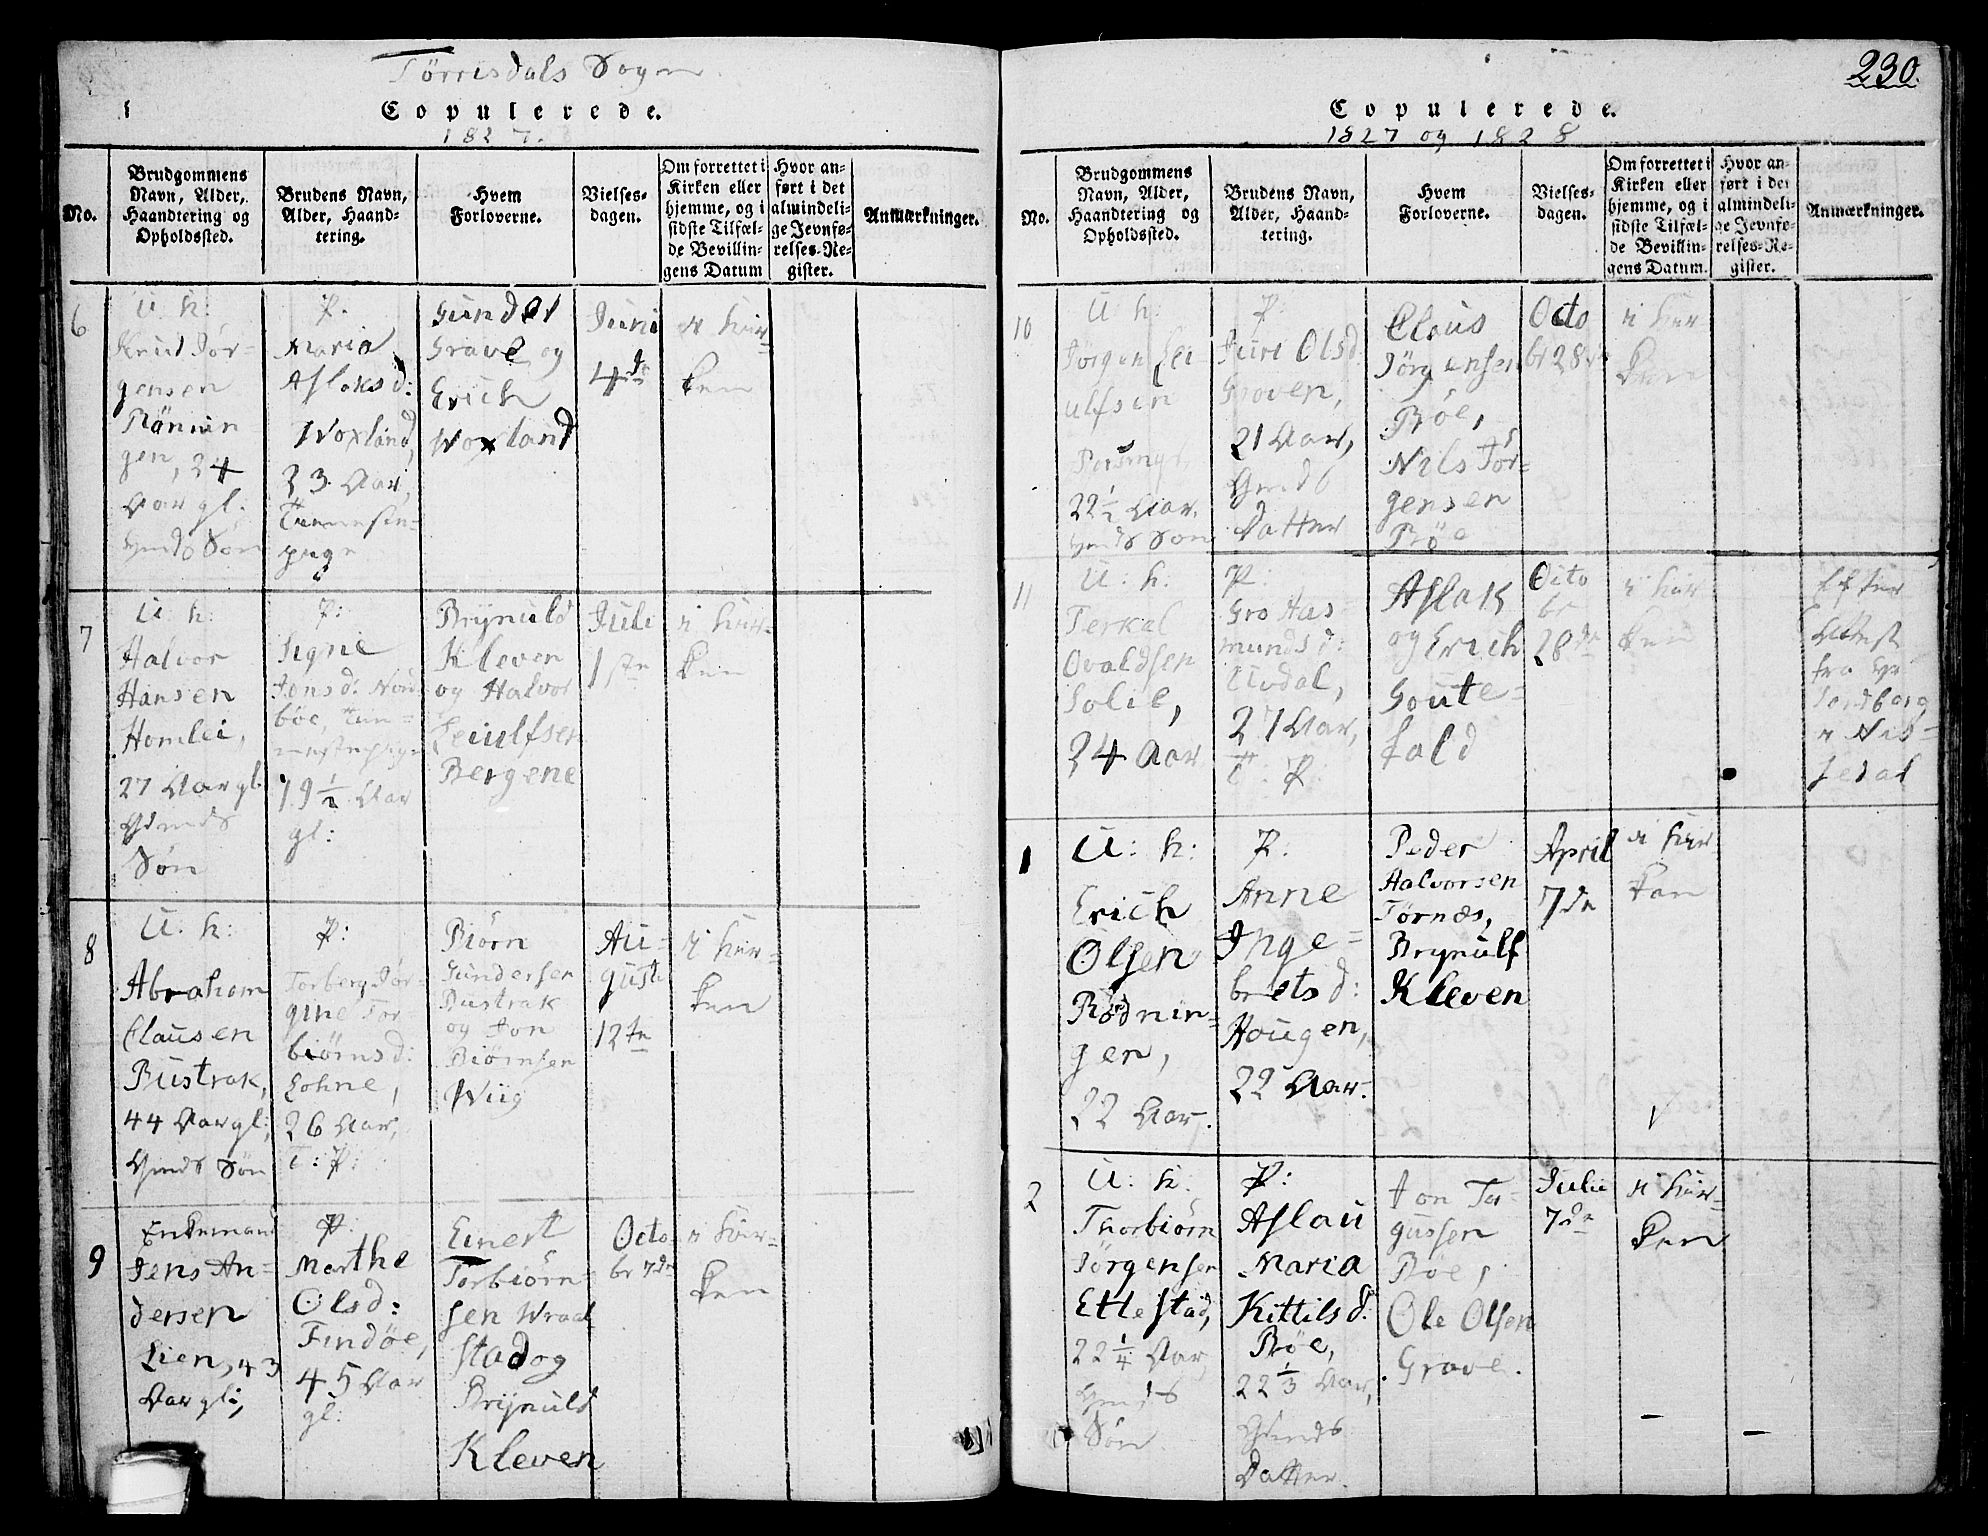 Tørrisdals Sogn
Copulerede.
1827.
No.
Brudgommens Navn, Alder, Haandtering og Opholdssted.
Brudens Navn, Alder, Haandtering.
Hvem Forloverne.
Vielsesdagen.
Om forrettet i Kirken eller hjemme, og i sidste Tilfælde Bevillingens Datum
Hvor anført i det almindelige Jevnførelses-Register.
Anmærkninger.
6
U: k:
Knud Jør-
gensen
Rönnin
gen, 24
Aar gl.
P.
Maria
Aslaksd:
Woxland,
23 Aar,
Gunder
Grave og
Erich
Woxland
Juni
4de
i Kir-
ken
7
U: k:
Halvor
Hansen
Homlei,
27 Aar gl.
Søn
P:
Signe
Jonsd:
böe,
19 1/2 Aar
gl:
Brynuld
Kleven
og Halvor
Leiulfsen
Bergene
Juli
1ste
i Kir-
ken
8
U: k:
Abraham
Clausen
Bustrak,
44 Aar gl:,
Søn
P:
Torberg Jør-
gine Tor
biørnsd:
Lohne,
26 Aar,
T: P:
Biørn
Gundersen
Bustrak
og Jon
Biørnsen
Wiig
Au-
gusti
12te
i Kir-
ken
9
Enkemand
Jens An-
dersen
Lien, 43
Aar gl:,
P.
Marthe
Olsd:
Findøe,
45 Aar
gl:
Einert
Torbiørn-
sen Wraal
stad og
Brynuld
Kleven
Octo
br 7de
i Kir-
ken
230.
Copulerede.
1827 og 1828
No.
Brudgommens Navn, Alder, Haandtering og Opholdssted.
Brudens Navn, Alder, Haandtering.
Hvem Forloverne.
Vielsesdagen.
Om forrettet i Kirken eller hjemme, og i sidste Tilfælde Bevillingens Datum.
Hvor anført i det almindelige Jevnførelses-Register.
Anmærkninger.
10
U: k:
Jørgen Lei
ulfsen
22 1/2 Aar,
Søn
P:
Juri Olsd
Groven,
21 Aar,
Datter
Claus
Jörgensen
Böe,
Nils Jör-
gensen
Böe
Octo
br 28de
i Kir
ken
11
U: k:
Terkal
Ovaldsen
Solie,
24 Aar
P:
Gro Aas-
mundsd:
Livdal,
27 Aar,
T: P:
Aslak
og Erich
Goute-
fald
Octo
br
28de
i Kir
ken
Efter
Attest
fra Hr
i Nis-
sedal
1
U: k:
Erich
Olsen
Rødnin-
gen,
22 Aar.
P:
Anne
Inge-
bretsd:
Hougen,
22 Aar.
Peder
Halvorsen
Tørnæs,
Brynulf
Kleven
April
7de
i Kir-
ken
2
U: k:
Thorbiørn
Jørgensen
Ettestad,
22 1/4 Aar
Søn
P:
Aslau
Maria
Kittilsd:
Bøe,
22 1/3 Aar,
Datter.
Jon Ta-
gussen
Bøe,
Ole Olsen
Grave.
Julii
7de
i Kir-
ken